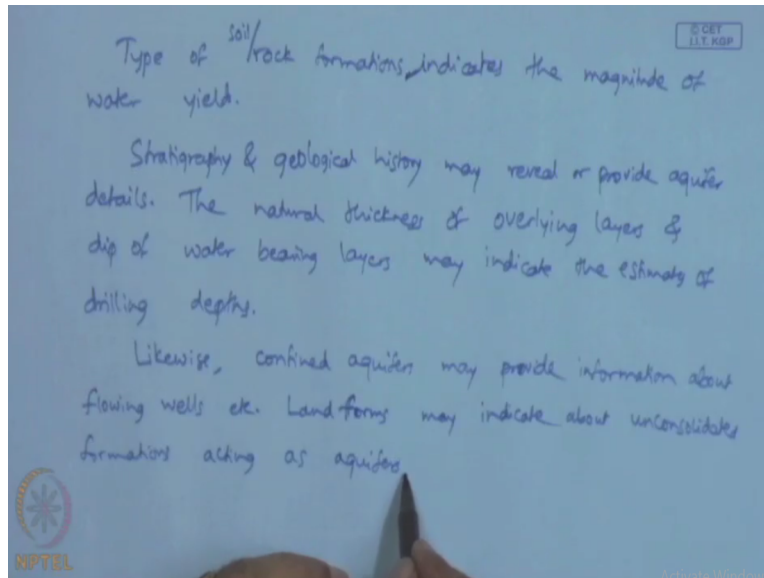 © CET
I.I.T. KGP
Type of soil/rock formations, indicates the magnitude of
water yield.
Stratigraphy & geological history may reveal or provide aquifer
details. The natural thickness of overlying layers &
dip of water bearing layers may indicate the estimate of
drilling depths.
Likewise, confined aquifers may provide information about
flowing wells etc. Land forms may indicate about unconsolidated
formations acting as aquifers
NPTEL
Activate Windows